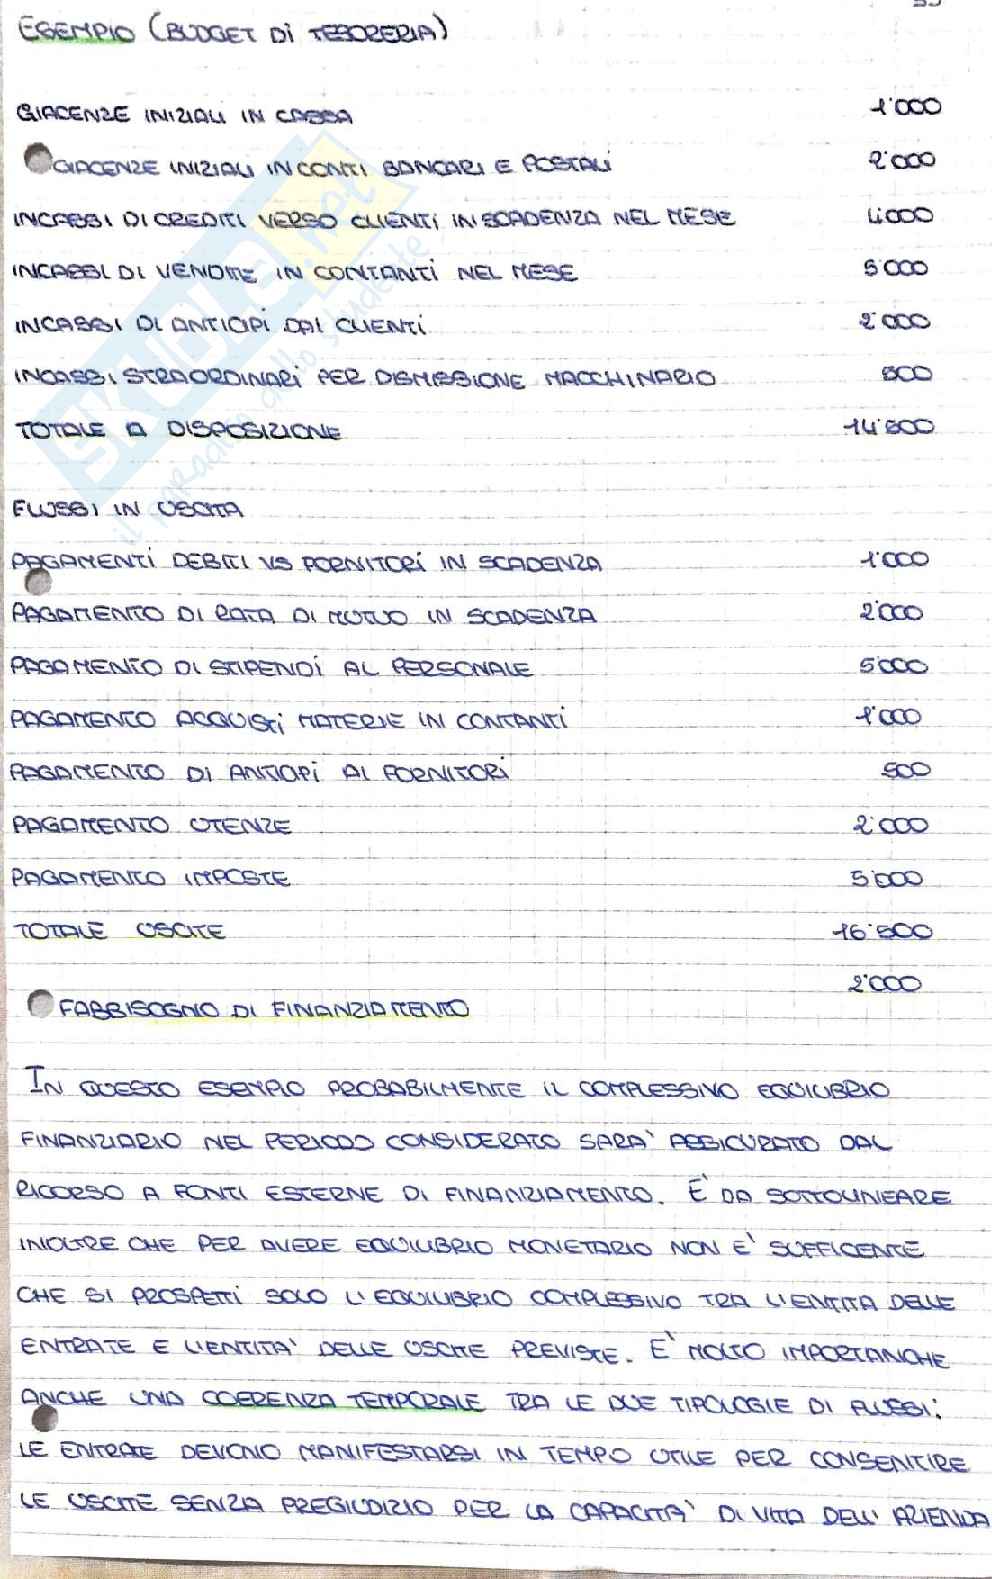 ESEMPIO (BUDGET DI TESORERIA)
GIACENZE INIZIALI IN CASSA 1'000
GIACENZE INIZIALI IN CONTI BANCARI E POSTALI 2'000
INCASSI DI CREDITI VERSO CLIENTI IN SCADENZA NEL MESE 4'000
INCASSI DI VENDITE IN CONTANTI NEL MESE 5'000
INCASSI DI ANTICIPI DAI CLIENTI 2'000
INCASSI STRAORDINARI PER DISMISSIONE MACCHINARIO 500
TOTALE A DISPOSIZIONE 14'500
FLUSSI IN USCITA
PAGAMENTI DEBITI VS FORNITORI IN SCADENZA 1'000
PAGAMENTO DI RATA DI MUTUO IN SCADENZA 2'000
PAGAMENTO DI STIPENDI AL PERSONALE 5'000
PAGAMENTO ACQUISTI MATERIE IN CONTANTI 1'000
PAGAMENTO DI ANTICIPI AI FORNITORI 500
PAGAMENTO UTENZE 2'000
PAGAMENTO IMPOSTE 5'000
TOTALE USCITE 16'500
2'000
FABBISOGNO DI FINANZIAMENTO
IN QUESTO ESEMPIO PROBABILMENTE IL COMPLESSIVO EQUILIBRIO
FINANZIARIO NEL PERIODO CONSIDERATO SARA' ASSICURATO DAL
RICORSO A FONTI ESTERNE DI FINANZIAMENTO. E' DA SOTTOLINEARE
INOLTRE CHE PER AVERE EQUILIBRIO MONETARIO NON E' SUFFICENTE
CHE SI PROSPETTI SOLO L'EQUILIBRIO COMPLESSIVO TRA L'ENTITA DELLE
ENTRATE E L'ENTITA' DELLE USCITE PREVISTE. E' MOLTO IMPORTANCHE
ANCHE UNA COERENZA TEMPORALE TRA LE DUE TIPOLOGIE DI FLUSSI:
LE ENTRATE DEVONO MANIFESTARSI IN TEMPO UTILE PER CONSENTIRE
LE USCITE SENZA PREGIUDIZIO PER LA CAPACITA' DI VITA DELL'AZIENDA
SKUOLA.net
il paradiso dello studente